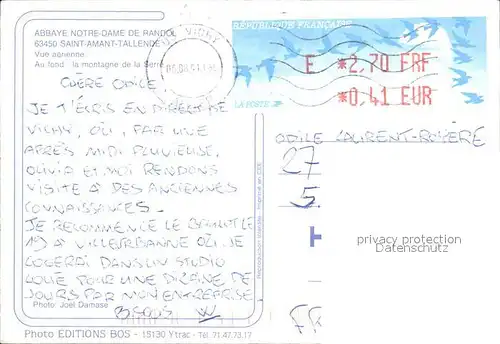 ABBAYE NOTRE-DAME DE RANDOL
63450 SAINT-AMANT-TALLENDE
Vue aérienne
Au fond : la montagne de la Serre
VICHY
RÉPUBLIQUE FRANÇAISE
E *2,70 FRF
*0,41 EUR
LA POSTE
CHÈRE ODILE,
JE T'ÉCRIS EN DIRECT DE
VICHY, OÙ, PAR UNE
APRÈS MIDI PLUVIEUSE,
OLIVIA ET MOI RENDONS
VISITE À DES ANCIENNES
CONNAISSANCES.
JE RECOMMENCE LE BOULOT LE
19 À VILLEURBANNE OÙ JE
LOGERAI DANS UN STUDIO
LOUÉ POUR UNE DIZAINE DE
JOURS PAR MON ENTREPRISE.
BISOUS
ODILE LAURENT
27
5.
H
privacy protection
Datenschutz
FR
Reproduction interdite - Imprimé en CEE
Photo: Joël Damase
Photo EDITIONS BOS - 15130 Ytrac - Tel. 71.47.73.17